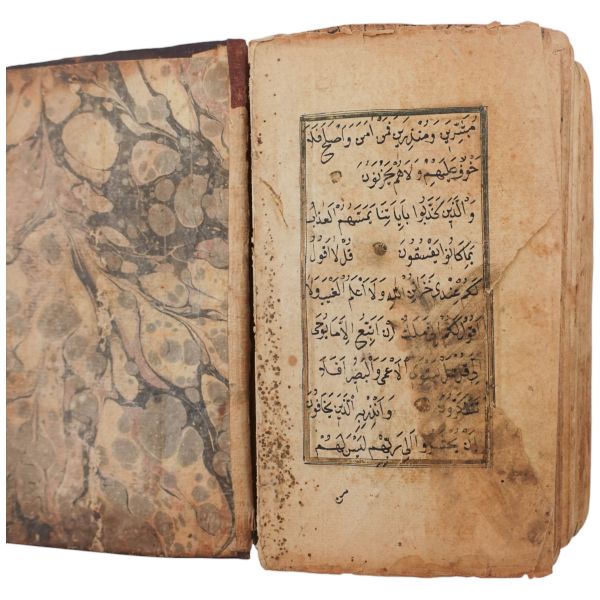 مُبَشِّرِينَ وَمُنْذِرِينَ فَمَنْ اٰمَنَ وَاَصْلَحَ فَلَا
خَوْفٌ عَلَيْهِمْ وَلَاهُمْ يَحْزَنُونَ
وَالَّذِينَ كَذَّبُوا بِاٰيَاتِنَا يَمَسُّهُمُ الْعَذَابُ
بِمَا كَانُوا يَفْسُقُونَ قُلْ لَا اَقُولُ
لَكُمْ عِنْدِى خَزَائِنُ اللّٰهِ وَلَا اَعْلَمُ الْغَيْبَ وَلَا
اَقُولُ لَكُمْ اِنِّى مَلَكٌ اِنْ اَتَّبِعُ اِلَّا مَايُوحٰى
اِلَىَّ قُلْ هَلْ يَسْتَوِى الْاَعْمٰى وَالْبَصِيرُ اَفَلَا
تَتَفَكَّرُونَ وَاَنْذِرْ بِهِ الَّذِينَ يَخَافُونَ
اَنْ يُحْشَرُوا اِلٰى رَبِّهِمْ لَيْسَ لَهُمْ
من